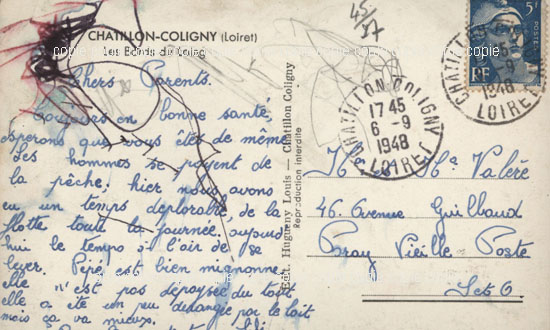 copie copie copie copie copie
CHATILLON-COLIGNY (Loiret)
Les Bords du Loing
Chers Parents.
toujours en bonne santé,
esperons que vous êtes de même
Les hommes se payent de
la pêche; hier nous avons
eu un temps déplorable, de la
flotte toute la journée, aujourd
hui le temps à l'air de se
lever. Pépé est bien mignonne
elle n'est pas dépaysée du tout
elle a été un peu dérangée par le lait
mais ça va mieux.
Edit. Hugueny Louis — Chatillon Coligny
Reproduction interdite
45
37
CHATILLON COLIGNY
17 45
6 - 9
1948
LOIRET
5F
POSTES
RF
CHATILLON
- 9
1948
LOIRET
Mr Mme Valère
46. Avenue Guilbaud
Pray Vieille Poste
S et O.